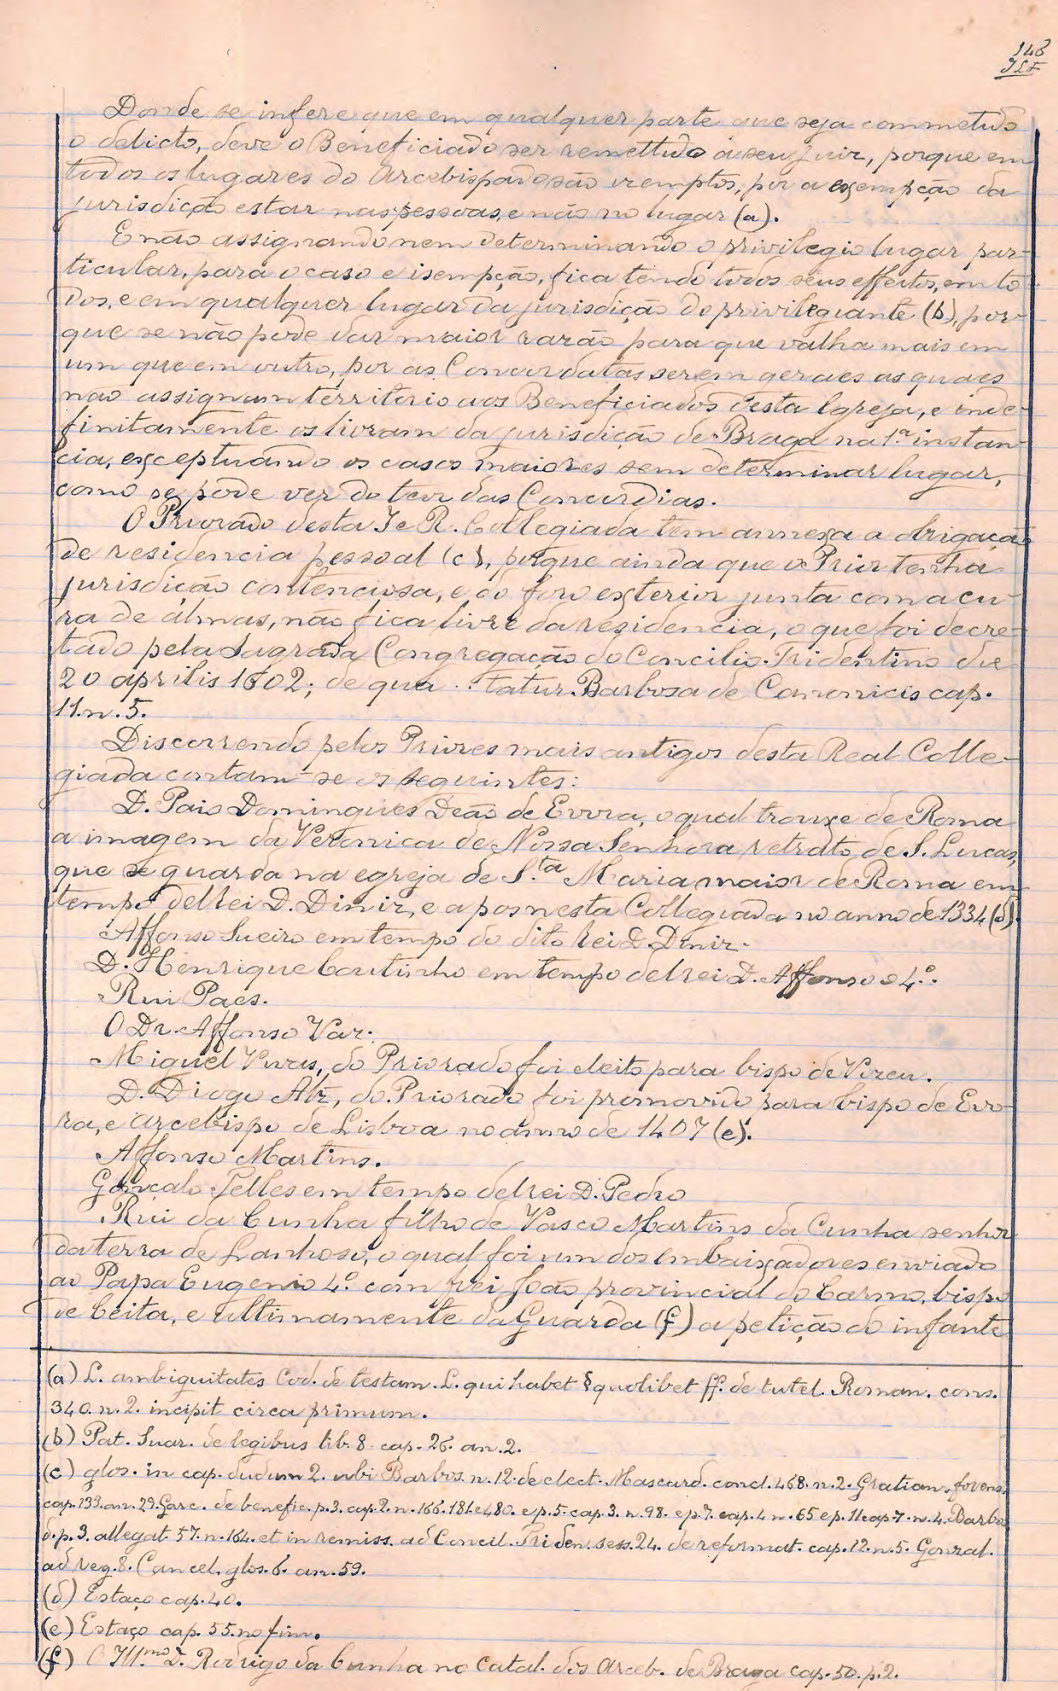 148
Donde se infere que em qualquer parte que seja commetido
o delicto, deve o Beneficiado ser remettido a seu juiz, porque em
todos os lugares do Arcebispado são exemptos, por a exempção da
jurisdição estar nas pessoas, e não no lugar (a).
E não assignando nem determinando o privilegio lugar par-
ticular, para o caso e isempção, fica tendo todos seus effeitos, em to-
dos, e em qualquer lugar da jurisdição do privilegiante (b), por-
que se não pode dar maior razão para que valha mais em
um que em outro, por as Concordatas serem geraes as quaes
não assignam territorio aos Beneficiados desta Igreja, e inde-
finitamente os livram da jurisdição de Braga na 1.ª instan-
cia, exceptuando os casos maiores sem determinar lugar,
como se pode ver do teor das Concordias.
O Priorado desta I e R. Collegiada tem annexa a obrigação
de residencia pessoal (c), porque ainda que o Prior tenha
jurisdição contenciosa, e do foro exterior junta com a cu-
ra de almas, não fica livre da residencia, o que foi decre-
tado pela Sagrada Congregação do Concilio Tridentino die
20 aprilis 1602; de qua . . tatur Barbosa de Canonicis cap.
11. n. 5.
Discorrendo pelos Priores mais antigos desta Real Colle-
giada contam-se os seguintes:
D. Paio Domingues Deão de Evora, o qual trouxe de Roma
a imagem da Veronica de Nossa Senhora retrato de S. Lucas,
que se guarda na egreja de S.ta Maria maior de Roma em
tempo delrei D. Diniz, e a pos nesta Collegiada no anno de 1334 (d)
Affonso Sueiro em tempo do dito rei D. Diniz.
D. Henrique Coutinho em tempo delrei D. Affonso o 4.º.
Rui Paes.
O Dr. Affonso Vaz.
Miguel Vivas, do Priorado foi eleito para bispo de Vizeu.
D. Diogo Alz, do Priorado foi promovido para bispo de Evo-
ra, e arcebispo de Lisboa no anno de 1407 (e).
Affonso Martins.
Gonçalo Telles em tempo delrei D. Pedro
Rui da Cunha filho de Vasco Martins da Cunha senhor
da terra de Lanhoso, o qual foi um dos embaixadores enviado
ao Papa Eugenio 4.º com frei João provincial do Carmo, bispo
de Ceita, e ultimamente da Guarda (f) a petição do infante
(a) L. ambiguitates Cod. de testam. L. qui habet § quolibet ff. de tutel. Roman. cons.
340. n. 2. incipit circa primum.
(b) Pat. Suar. de legibus lib. 8. cap. 26. an. 2.
(c) glos. in cap. dudum 2. ubi Barbos. n. 12. de elect. Mascard. concl. 468. n. 2. Gratian. forens.
cap. 133. an. 29. Garc. de benefic. p. 3. cap. 2. n. 166. 181 e 480. e p. 5. cap. 3. n. 98. e p. 7. cap. 4. n. 65 e p. 11 cap. 7. n. 4. Barbo
d. p. 3. allegat 57. n. 164. et in remiss. ad Concil. Triden. sess. 24. de reformat. cap. 12. n. 5. Gonzal.
ad reg. 8. Cancel. glos. 6. an. 59.
(d) Estaço cap. 40.
(e) Estaço cap. 55. no fim.
(f) O Ill.mo D. Rodrigo da Cunha no Catal. dos Arceb. de Braga cap. 50. p. 2.